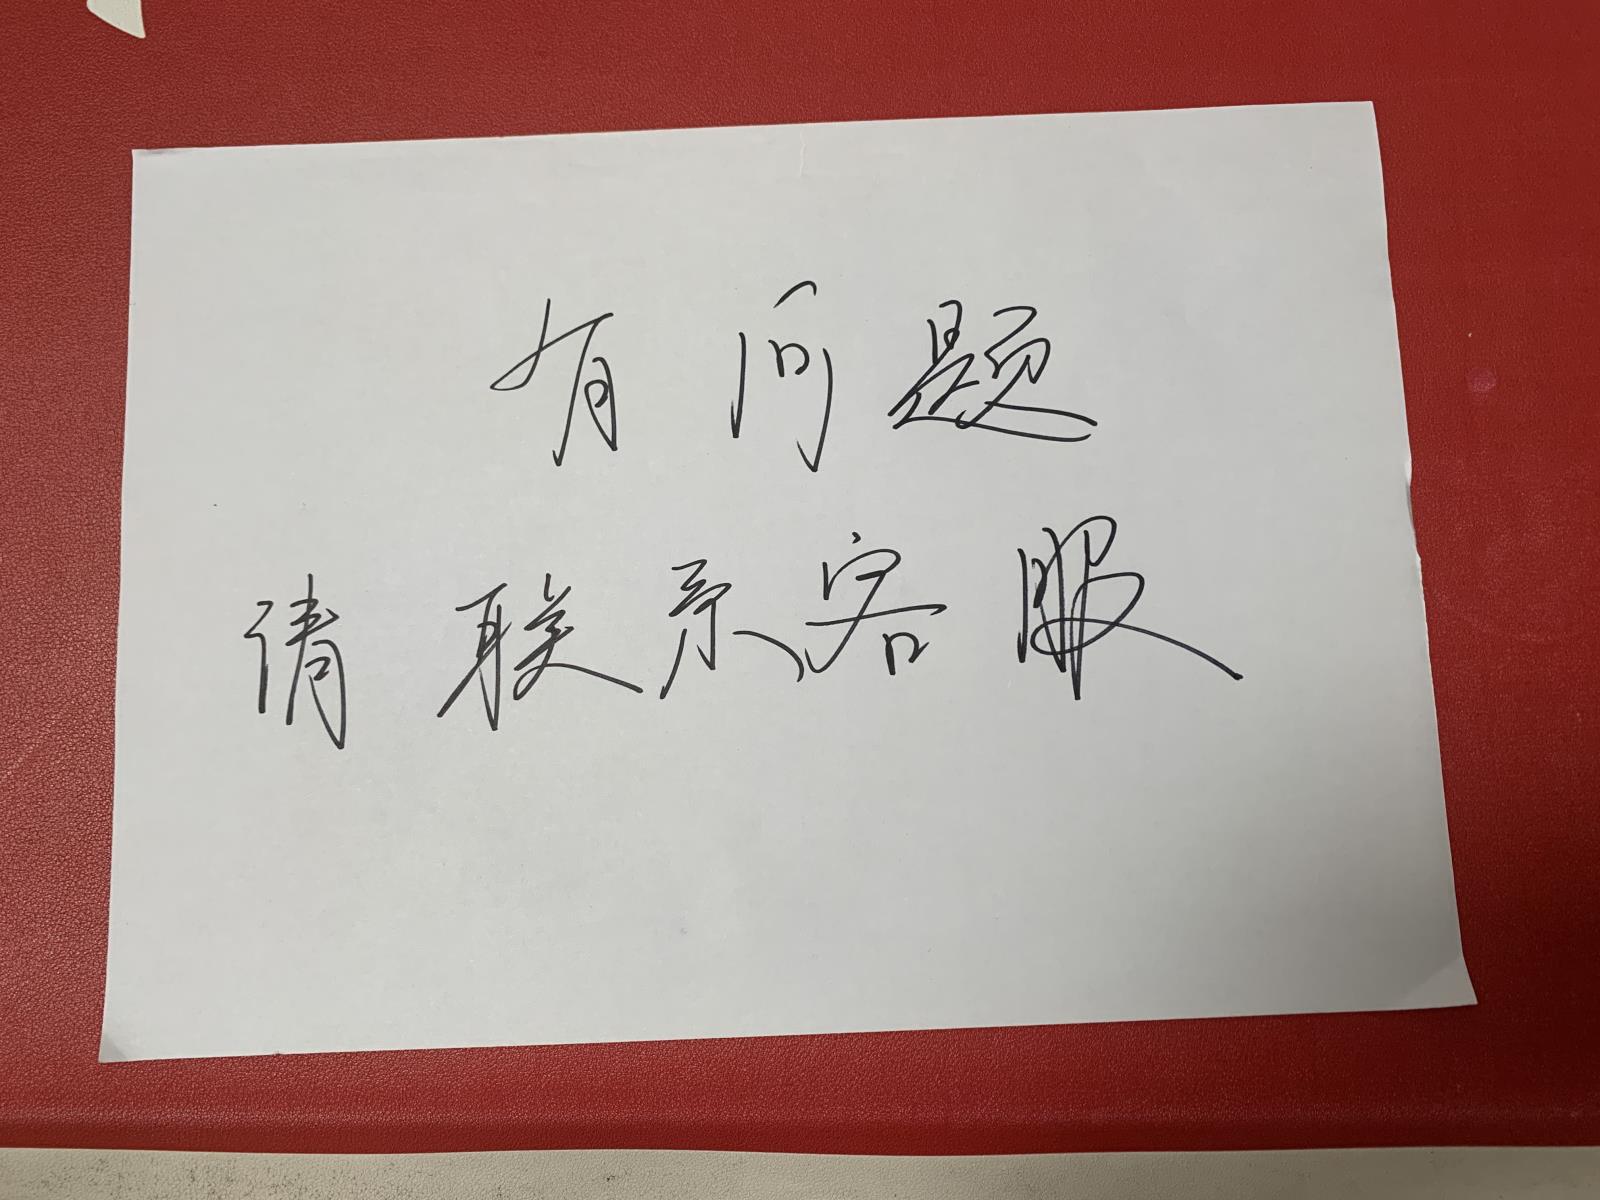 有问题
请联系客服